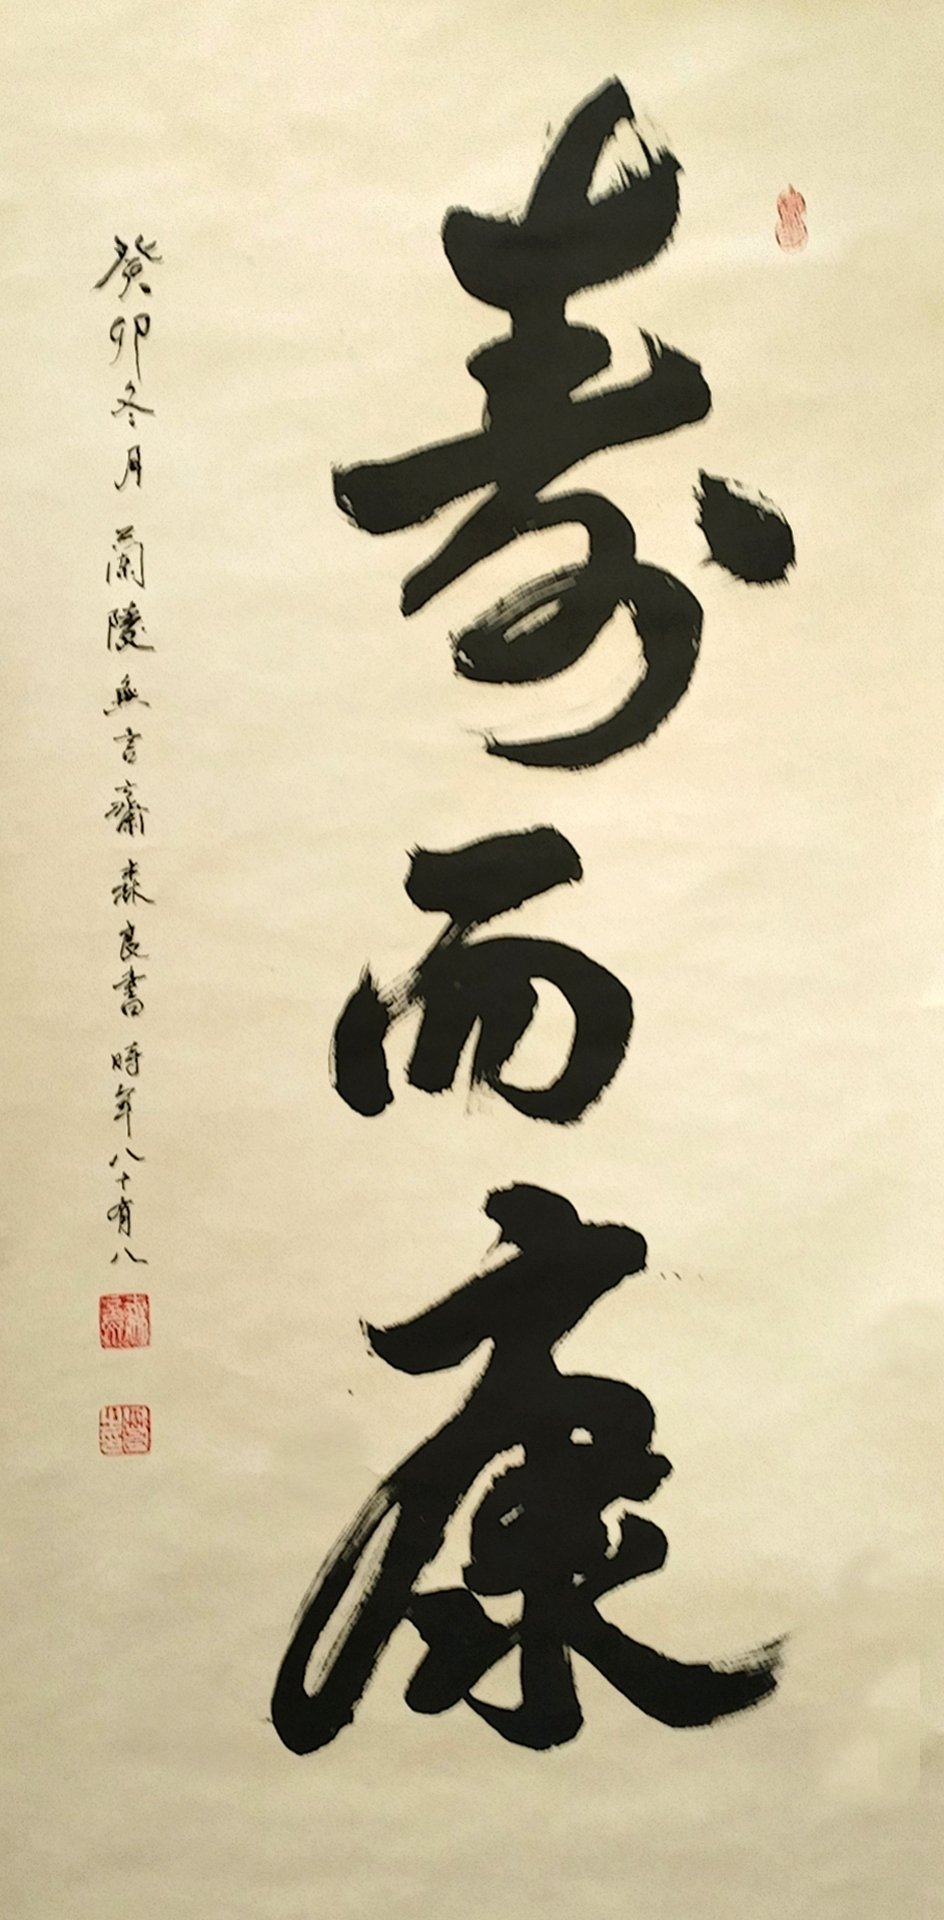 寿而康
癸卯冬月蘭陵無言齋森良書時年八十有八